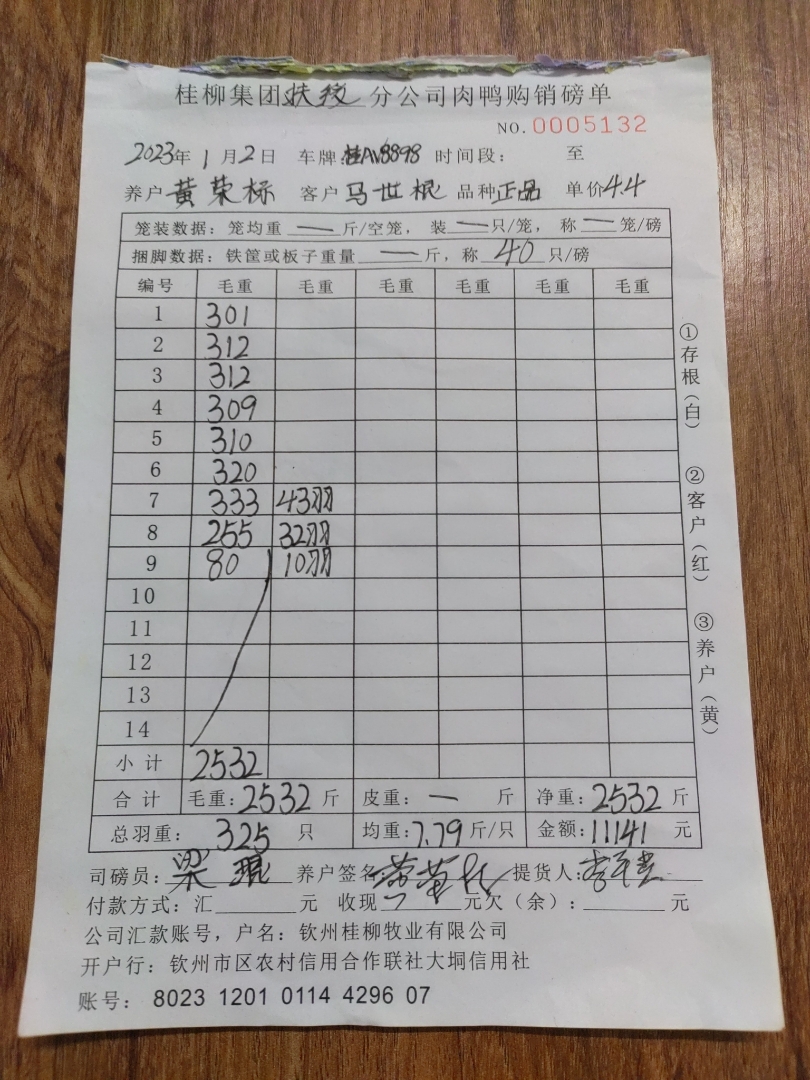 桂柳集团扶绥分公司肉鸭购销磅单
NO.0005132
2023年1月2日 车牌:桂AV8898 时间段: 至
养户黄荣标 客户马世根 品种正品 单价4.4
笼装数据:笼均重一斤/空笼,装一只/笼,称一笼/磅
捆脚数据:铁筐或板子重量一斤,称40只/磅
编号 毛重 毛重 毛重 毛重 毛重 毛重
1 301
2 312
3 312
4 309
5 310
6 320
7 333 43羽
8 255 32羽
9 80 10羽
10
11
12
13
14
小计 2532
合计 毛重:2532斤 皮重:一斤 净重:2532斤
总羽重:325只 均重:7.79斤/只 金额:11141元
司磅员:梁琨 养户签名 提货人:
付款方式:汇______元 收现______元欠(余):______元
公司汇款账号,户名:钦州桂柳牧业有限公司
开户行:钦州市区农村信用合作联社大垌信用社
账号:8023 1201 0114 4296 07
①存根(白)
②客户(红)
③养户(黄)